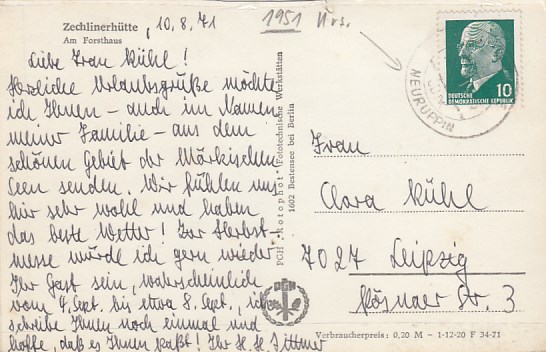 Zechlinerhütte
Am Forsthaus
10.8.71
Liebe Frau Kühl!
Herzliche Urlaubsgrüße möchte
ich Ihnen – auch im Namen
meiner Familie – aus dem
schönen Gebiet der Märkischen
Seen senden. Wir fühlen uns
hir sehr wohl und haben
das beste Wetter! Zur Herbst-
messe würde ich gern wieder
Ihr Gast sein, wahrscheinlich
vom 4. Sept. bis etwa 8. Sept., ich
schreibe Ihnen noch einmal und
hoffe, daß es Ihnen paßt! Ihr H. H. Sittner
PGH „Rotophot" Fototechnische Werkstätten
1602 Bestensee bei Berlin
PGH
1951
NEURUPPIN
DEUTSCHE
DEMOKRATISCHE REPUBLIK
10
Frau
Clara Kühl
7027 Leipzig
Pösnaer Str. 3
Verbraucherpreis: 0,20 M – 1-12-20 F 34-71